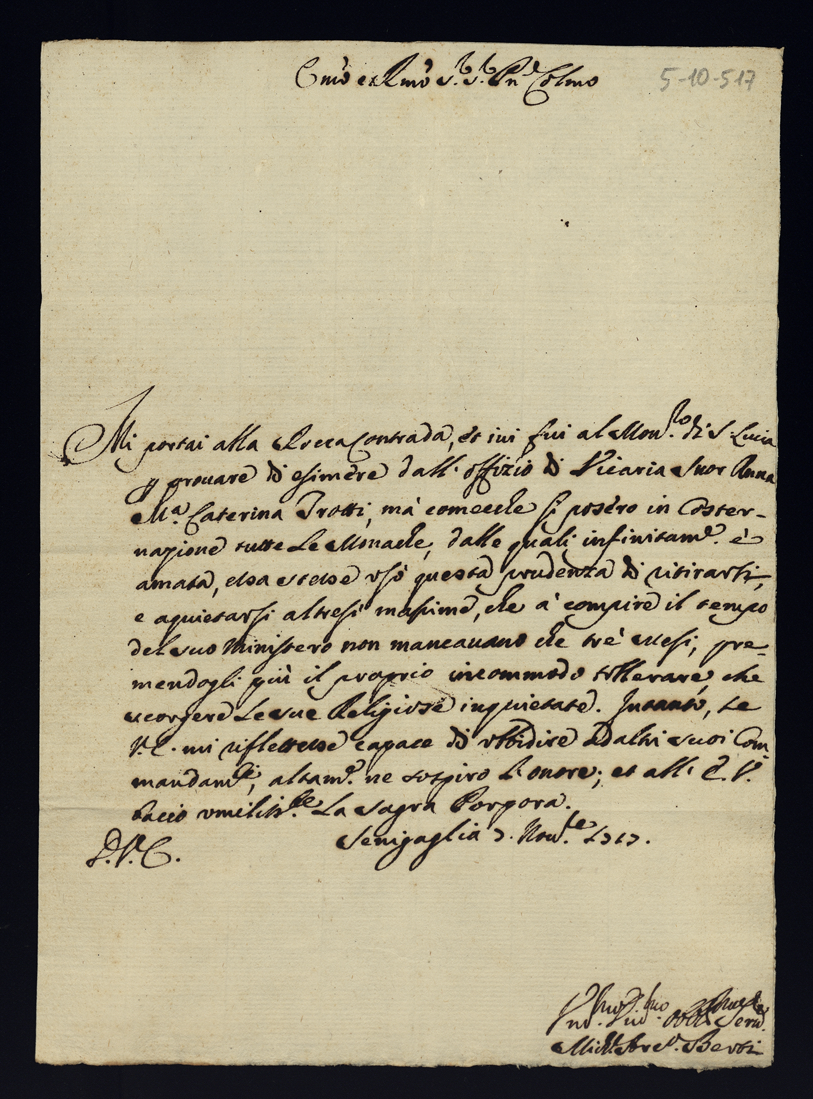 Emo e Rmo Sr. Sr. Pne Colmo
5-10-517
Mi portai alla Rocca Contrada, et ivi fui al Mon.ro di S. Lucia
p provare di esimere dall' offizio di Vicaria Suor Anna
Ma. Caterina Trotti, mà comecche si posero in Coster-
nazione tutte Le Monache, dalle quali infinitam.e è
amata, essa stesse usò questa prudenza di ritirarsi,
e aquietarsi altresì massime, che à compire il tempo
del suo Ministero non mancavano che trè Mesi, pre-
mendogli più il proprio incommodo tollerare, che
scorgere Le sue Religiose inquietate. Intanto, se
V. E. mi riflettesse capace di ubbidire ad altri suoi Com
mandam.ti, altam.e ne sospiro L'onore; et all' E. V.
bacio umiliss.te La Sagra Porpora.
D. V. E. Senigaglia 7. Nov.re 1717.
Umo. Dmo. Obblmo Serv.
Berti